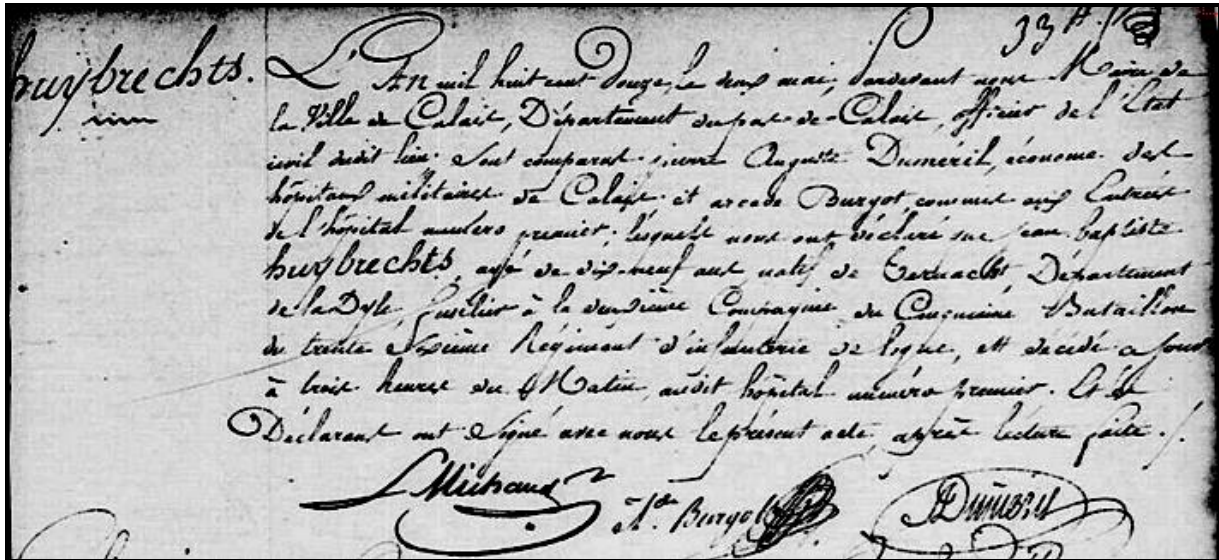 huybrechts.
L'An mil huit cent douze, le deux mai, pardevant nous Maire de
la Ville de Calais, Département du pas-de-Calais, officier de l'Etat
civil dudit lieu. Sont comparus sieurs Auguste Duméril, économe des
hôpitaux militaires de Calais et arcade Burgot, commis aux Entrées
de l'hôpital numéro premier, lesquels nous ont déclaré que jean baptiste
huybrechts, agé de dix-neuf ans natif de Département
de la Dyle, fusilier à la deuxième Compagnie du Cinquième Bataillon
du trente Sixième Régiment d'infanterie de ligne, est décédé ce jour
à trois heures du Matin, audit hôpital numéro premier. Et les
Déclarants ont Signé avec nous le présent acte, après lecture faite ./.
Michaud
Burgot
Duméril